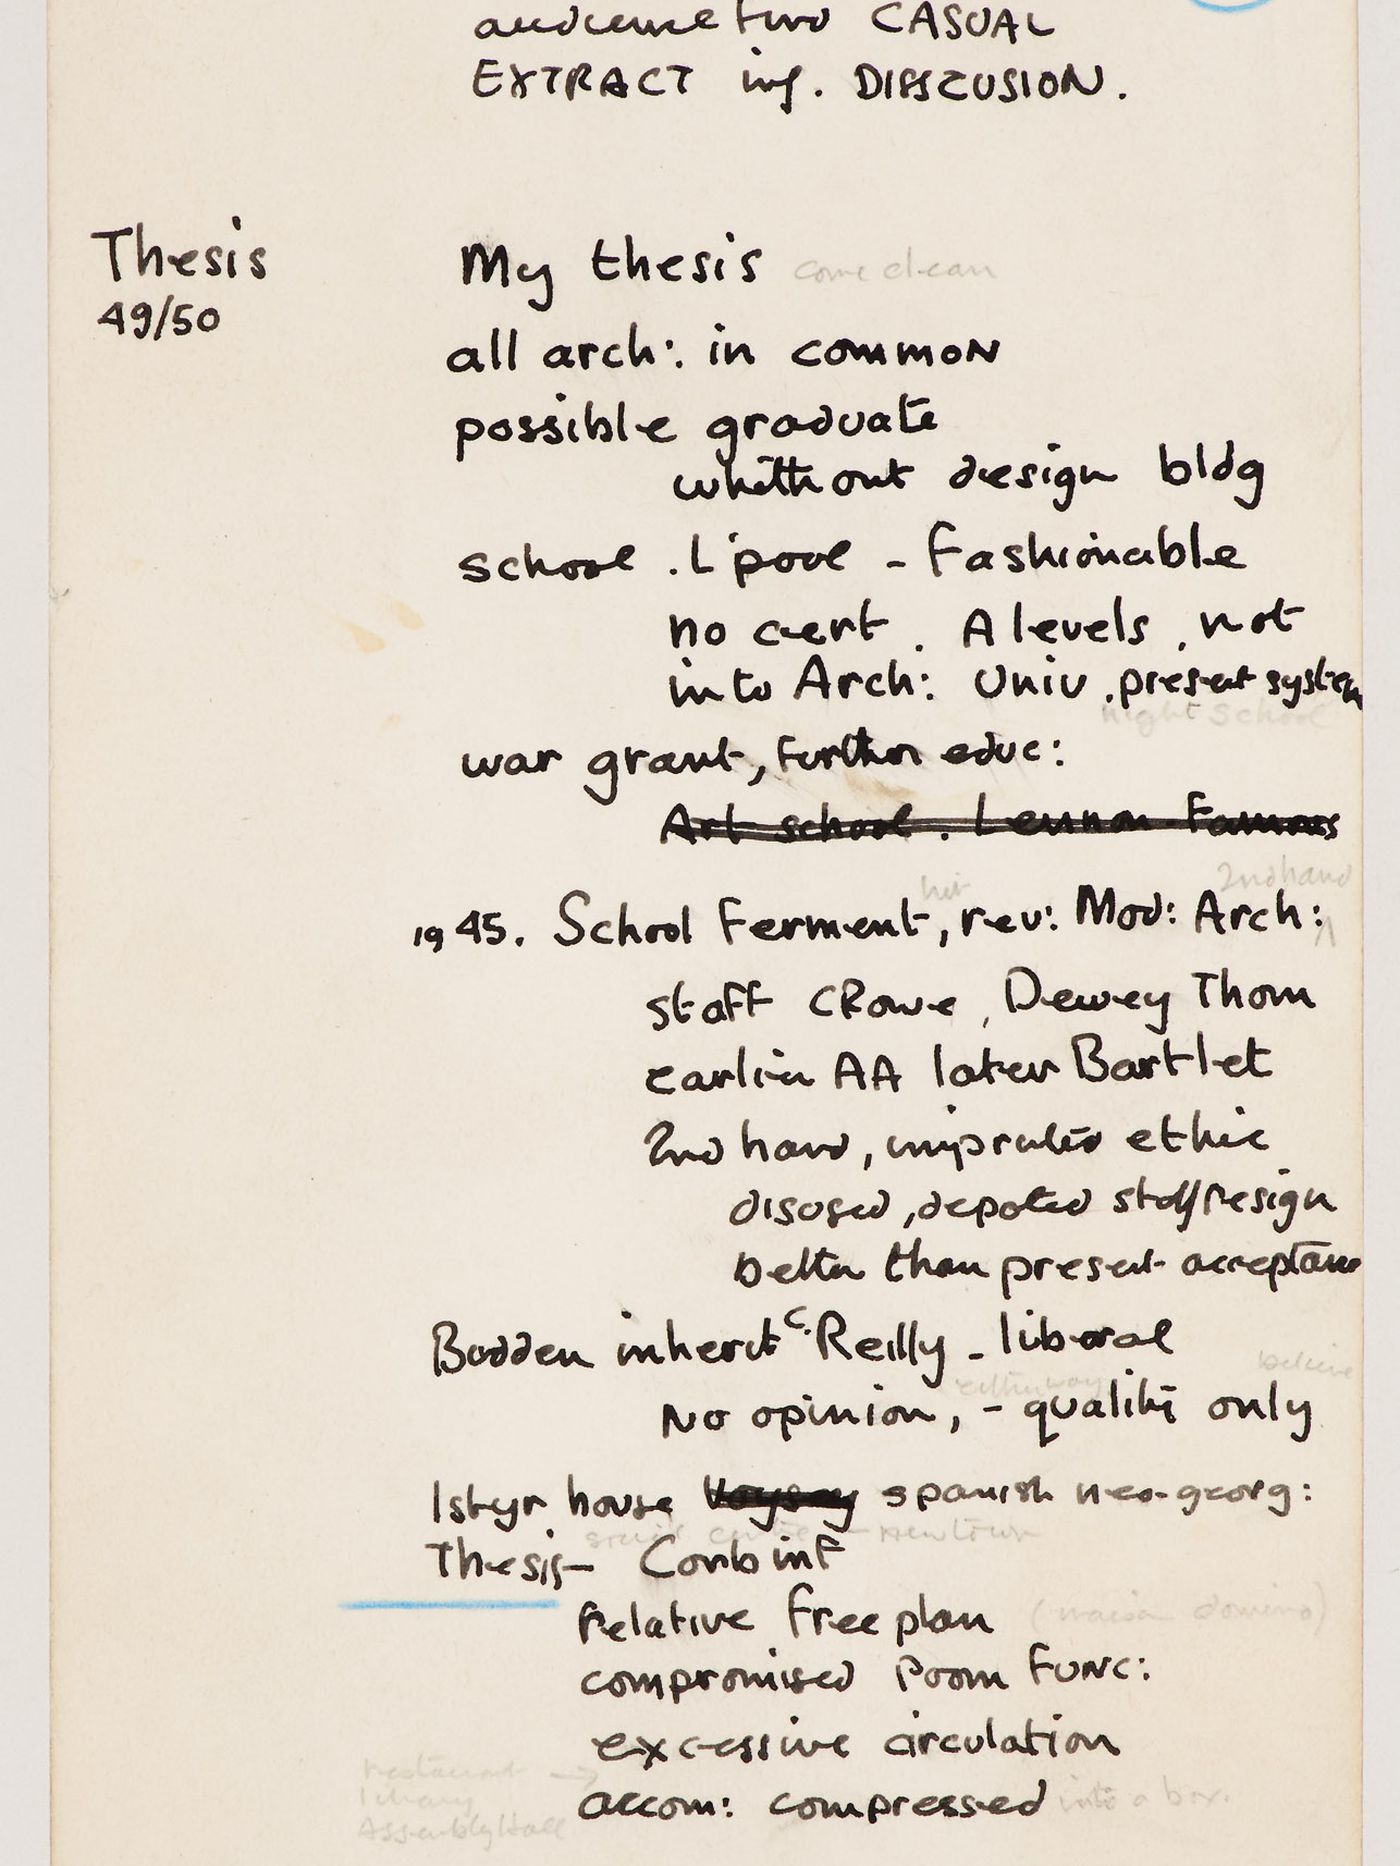 audience find CASUAL
EXTRACT inf. DISSCUSION.
Thesis
49/50
My thesis come clean
all arch: in common
possible graduate
whithout design bldg
school. L'pool - Fashionable
no cert. A levels, not
into Arch: Univ. present system
night school
war grant, further educ:
Art school. Lennon Famous
hit 2nd hand
1945. School Ferment, rev: Mod: Arch:
staff CRowe, Dewey Thom
earlier AA later Bartlet
2nd hand, imported ethic
disused, depoted staff resign
better than present acceptance
Budden inherit C. Reilly - liberal
either way believe
No opinion, - quality only
1styr house Voysey spanish neo-georg:
centre - New town
Thesis - Corb inf
Relative free plan (maison domino)
compromised Room Func:
excessive circulation
restaurant →
library
Assembly Hall
accom: compressed into a box.